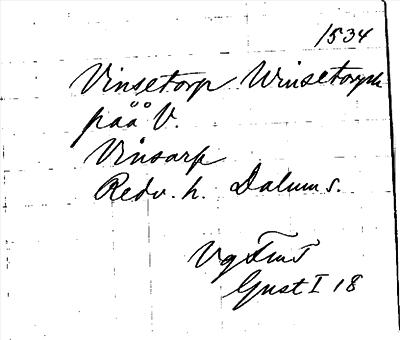 1534
Vinsetorp Winsetorph
påå V.
Vinsarp
Redv. h. Dalum s.
Vg FmT
Gust I 18